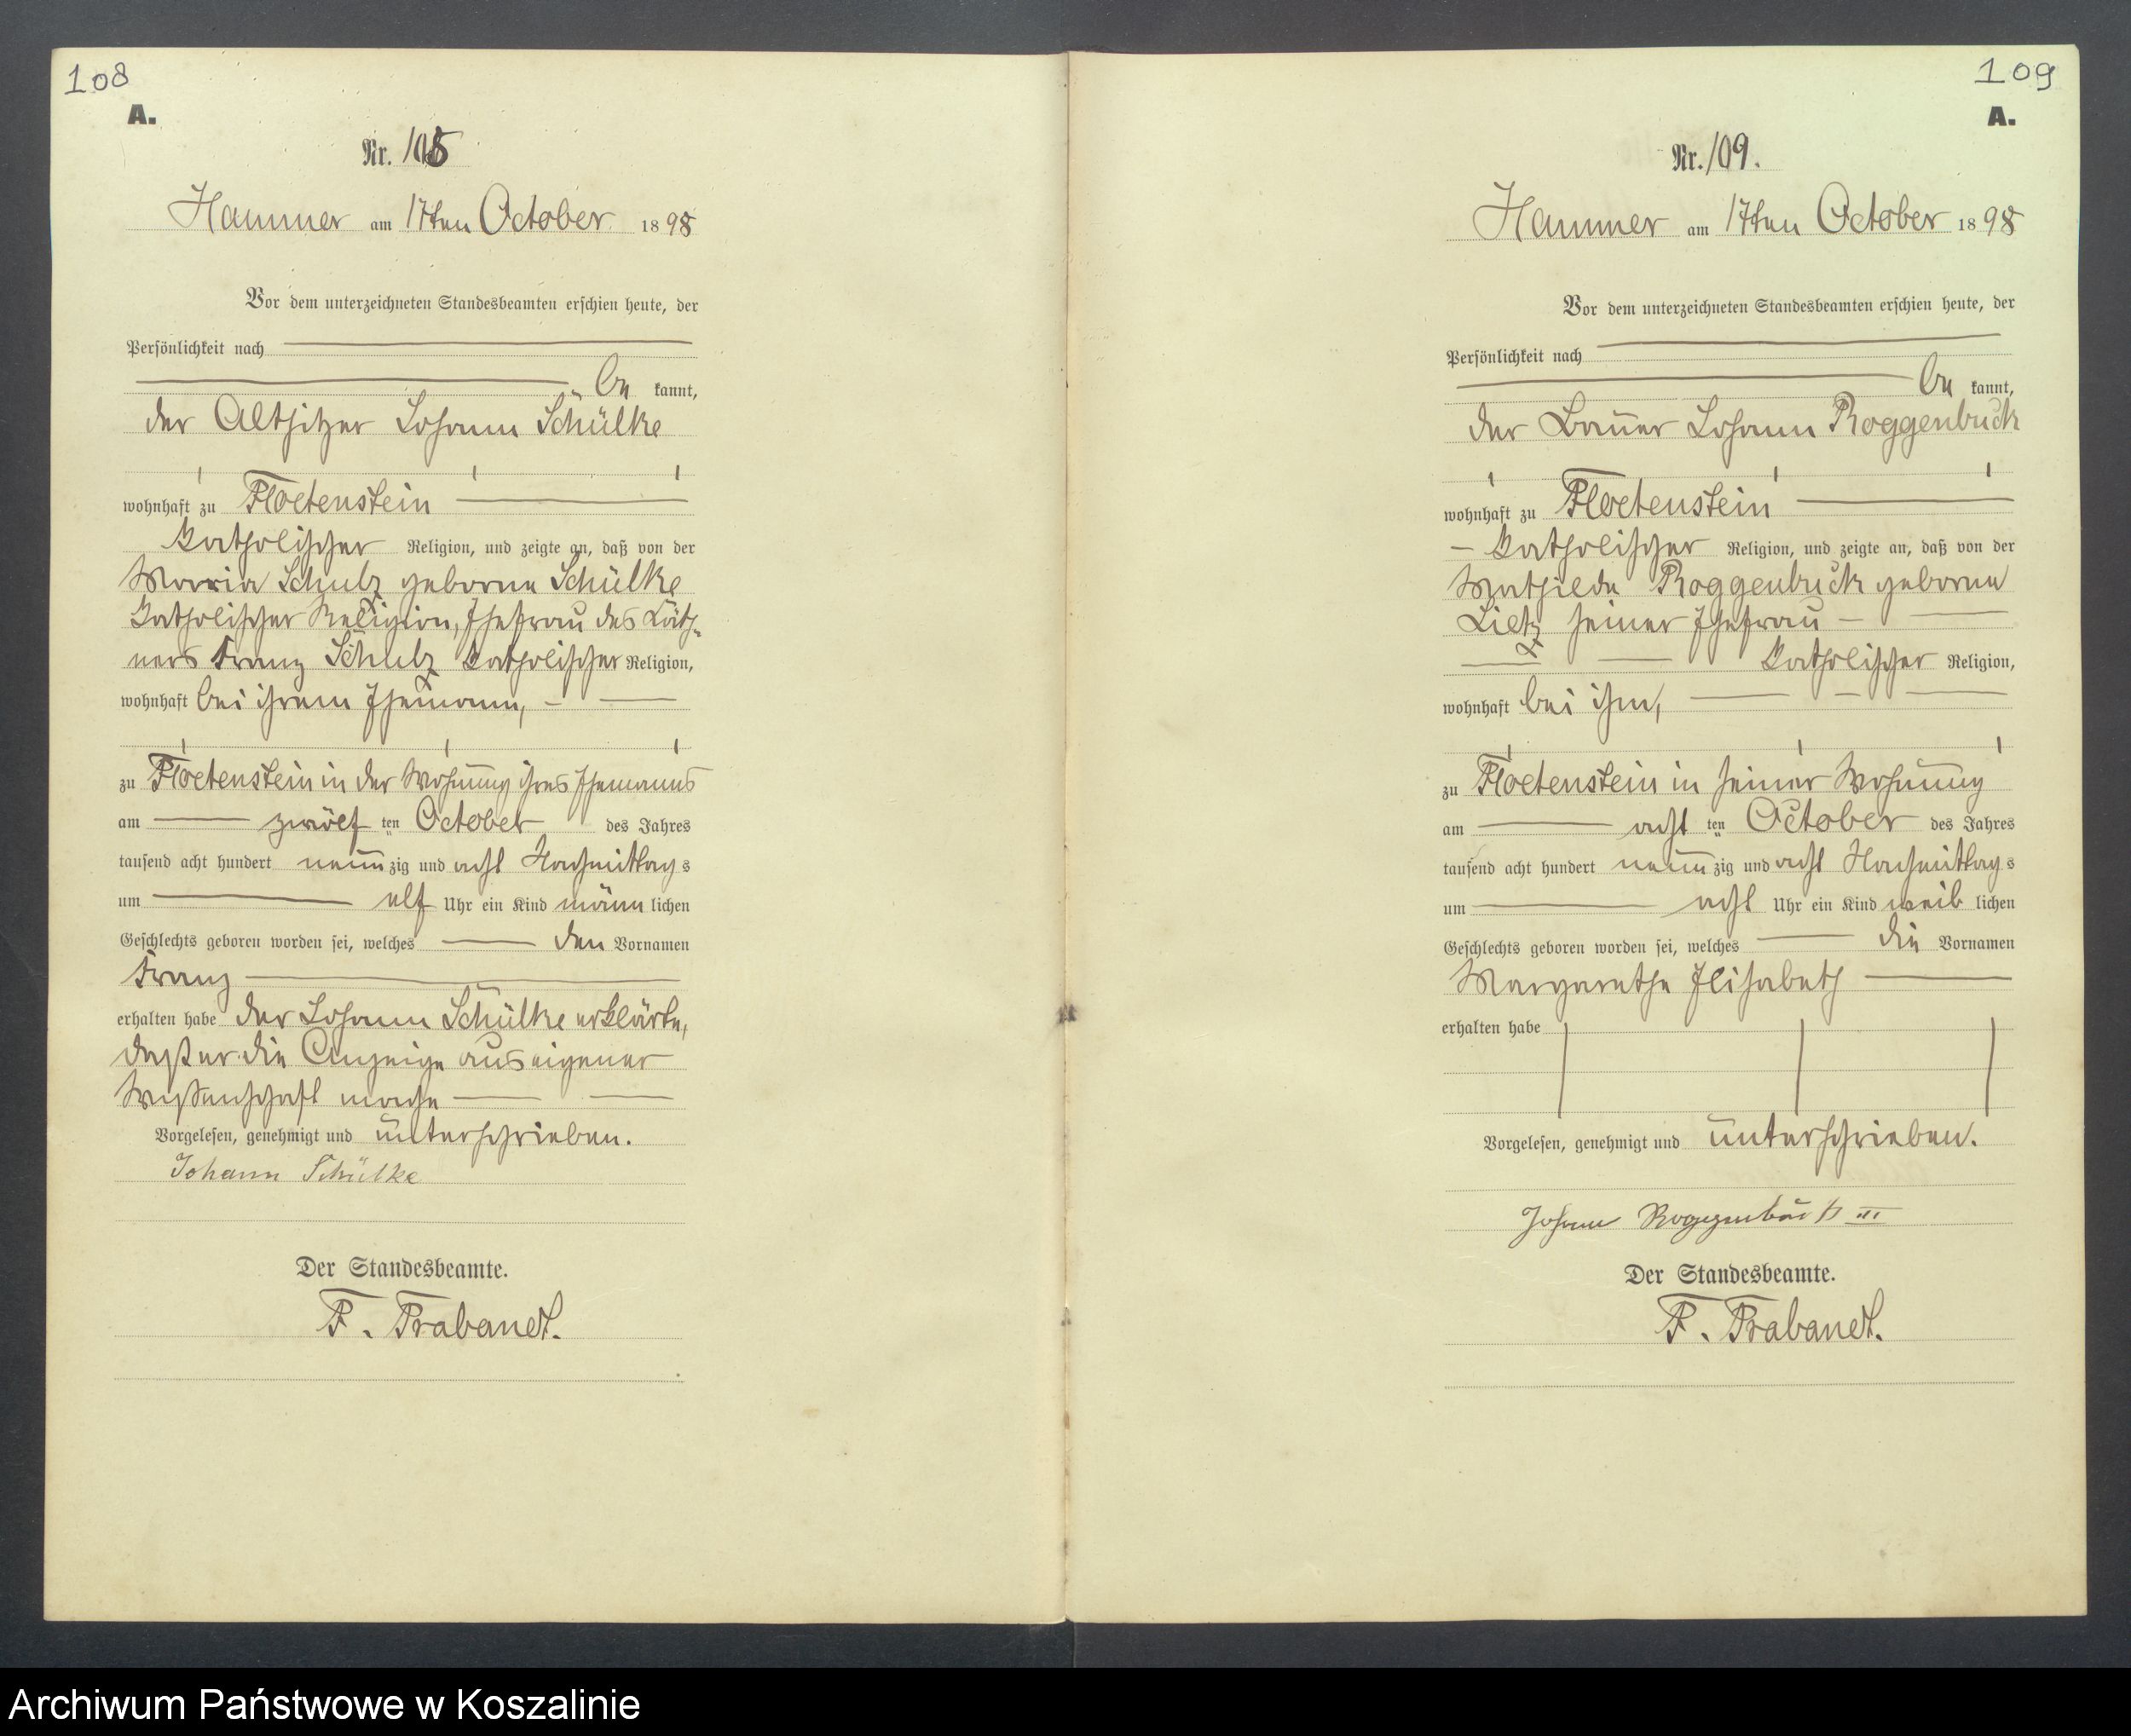 108
A.
Nr. 108
Hammer am 17ten October 1898
Vor dem unterzeichneten Standesbeamten erschien heute, der
Persönlichkeit nach
be kannt,
der Altsitzer Johann Schülke
wohnhaft zu Floetenstein
katholischer Religion, und zeigte an, daß von der
Maria Schulz geborne Schülke
katholischer Religion, Ehefrau des Käth-
ners Franz Schulz katholischer Religion,
wohnhaft bei ihrem Ehemann,
zu Floetenstein in der Wohnung ihres Ehemanns
am zwölf ten October des Jahres
tausend acht hundert neun zig und acht Nachmittag s
um elf Uhr ein Kind männ lichen
Geschlechts geboren worden sei, welches den Vornamen
Franz
erhalten habe der Johann Schülke erklärte,
daß er die Anzeige aus eigener
Wissenschaft mache
Vorgelesen, genehmigt und unterschrieben.
Johann Schülke
Der Standesbeamte.
F. Prabandt.
109
A.
Nr. 109.
Hammer am 17ten October 1898
Vor dem unterzeichneten Standesbeamten erschien heute, der
Persönlichkeit nach
be kannt,
der Bauer Johann Roggenbuck
wohnhaft zu Floetenstein
katholischer Religion, und zeigte an, daß von der
Mathilde Roggenbuck geborne
Lietz seiner Ehefrau
katholischer Religion,
wohnhaft bei ihm,
zu Floetenstein in seiner Wohnung
am acht ten October des Jahres
tausend acht hundert neun zig und acht Nachmittag s
um acht Uhr ein Kind weib lichen
Geschlechts geboren worden sei, welches die Vornamen
Margarethe Elisabeth
erhalten habe
Vorgelesen, genehmigt und unterschrieben.
Johann Roggenbuck III
Der Standesbeamte.
F. Prabandt.
Archiwum Państwowe w Koszalinie